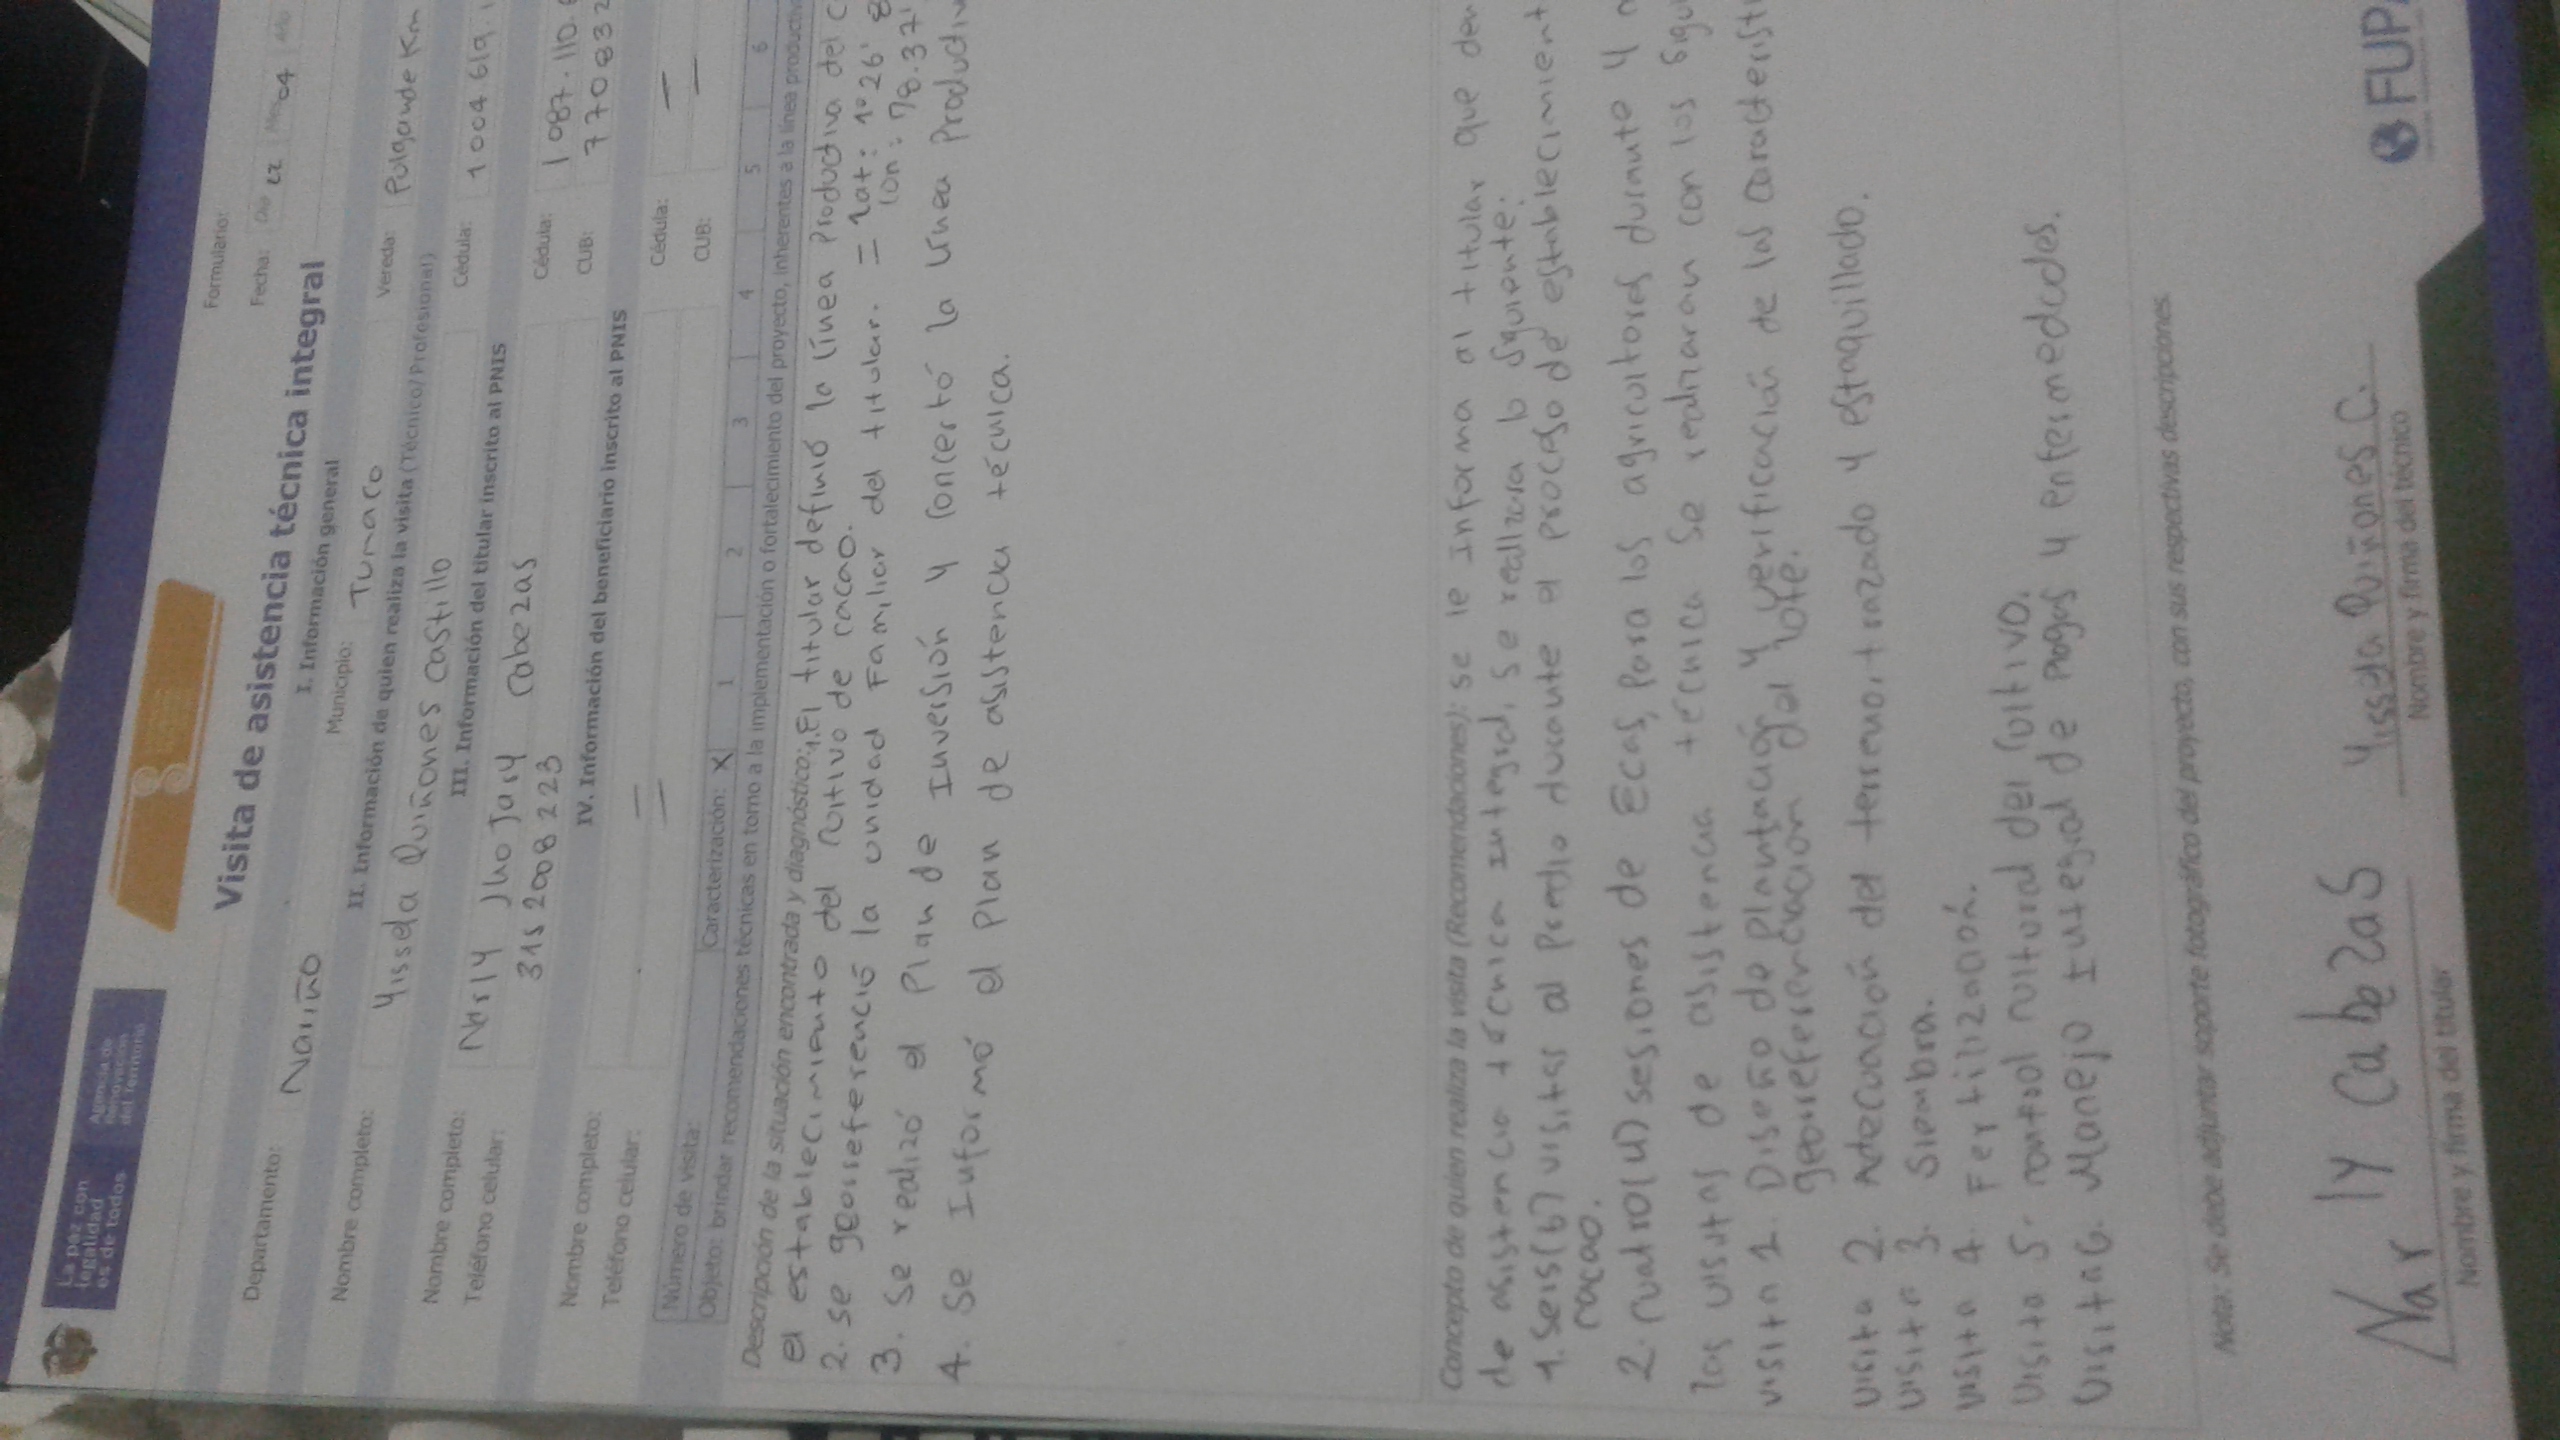 La paz con
legalidad
es de todos
Agencia de
Renovación
del Territorio
Formulario:
Visita de asistencia técnica integral
Fecha: Día 22 Mes 04 Año
I. Información general
Departamento: Nariño Municipio: Tumaco Vereda: Pulgande Km
II. Información de quien realiza la visita (Técnico/Profesional)
Nombre completo: Yissela Quiñones Castillo Cédula: 1004619.
III. Información del titular inscrito al PNIS
Nombre completo: Narly Jhojary Cabezas Cédula: 1087.110.
Teléfono celular: 3152008223 CUB: 770832
IV. Información del beneficiario inscrito al PNIS
Nombre completo: — Cédula: —
Teléfono celular: — CUB: —
Número de visita: Caracterización: X 1 2 3 4 5 6
Objeto: brindar recomendaciones técnicas en torno a la implementación o fortalecimiento del proyecto, inherentes a la línea productiva
Descripción de la situación encontrada y diagnóstico: 1. El titular definió la línea productiva del c
el establecimiento del cultivo de cacao.
2. se georeferenció la unidad Familiar del titular. = Lat: 1°26' 8
Lon: 78.37'
3. Se realizó el Plan de Inversión y concertó la línea Productiv
4. Se Informó el Plan de asistencia técnica.
Concepto de quien realiza la visita (Recomendaciones): se le Informa al titular que den
de asistencia técnica integral, se realizara lo siguiente:
1. Seis(6) visitas al predio durante el proceso de establecimient
cacao.
2. cuatro(4) sesiones de Ecas, para los agricultores durante y
las visitas de asistencia técnica se realizaran con los sigu
visita 1. Diseño de plantación y verificación de las característi
georeferenciación del lote.
visita 2. Adecuación del terreno, trazado y estaquillado.
visita 3. Siembra.
visita 4. Fertilización.
visita 5. control cultural del cultivo.
visita 6. Manejo Integral de plagas y enfermedades.
Nota: Se debe adjuntar soporte fotográfico del proyecto, con sus respectivas descripciones
Narly Cabezas
Nombre y firma del titular
Yissela Quiñones C.
Nombre y firma del técnico
FUPA